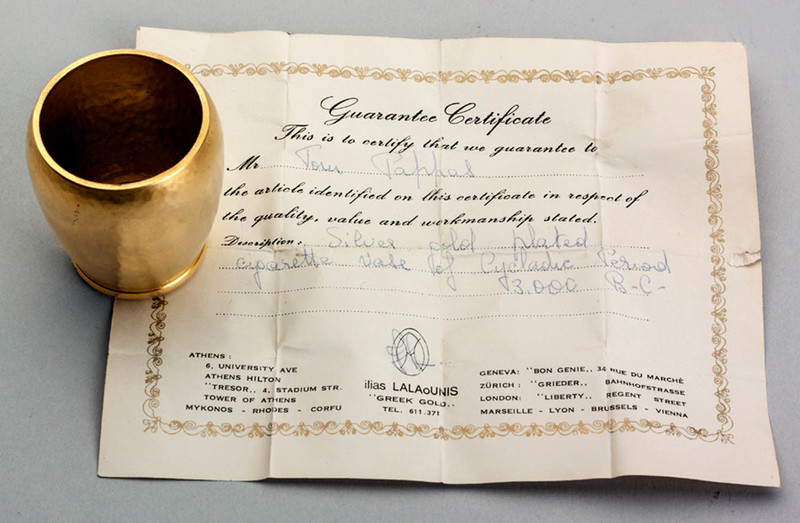 Guarantee Certificate
This is to certify that we guarantee to
Mr Tom Pappas
the article identified on this certificate in respect of
the quality, value and workmanship stated.
Description: Silver gold plated
cigarette vase of Cycladic Period
3.000 B-C-
ATHENS:
6, UNIVERSITY AVE
ATHENS HILTON
''TRESOR,, 4, STADIUM STR.
TOWER OF ATHENS
MYKONOS - RHODES - CORFU
ilias LALAoUNIS
''GREEK GOLD,,
TEL. 611.371
GENEVA: ''BON GENIE,, 34 RUE DU MARCHÉ
ZÜRICH: ''GRIEDER,, BAHNHOFSTRASSE
LONDON: ''LIBERTY,, REGENT STREET
MARSEILLE - LYON - BRUSSELS - VIENNA